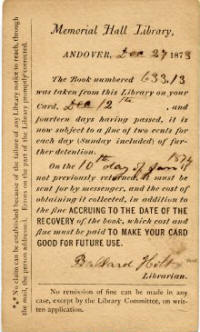 Memorial Hall Library,
ANDOVER, Dec 27 1873
The Book numbered 633.13
was taken from this Library on your
Card, Dec 12th, and
fourteen days having passed, it is
now subject to a fine of two cents for
each day (Sunday included) of fur-
ther detention.
On the 10th day of Jan'y 1874
not previously returned, it must be
sent for by messenger, and the cost of
obtaining it collected, in addition to
the fine ACCRUING TO THE DATE OF THE
RECOVERY of the book, which cost and
fine must be paid TO MAKE YOUR CARD
GOOD FOR FUTURE USE.
Ballard Holt
Librarian.
No remission of fine can be made in any
case, except by the Library Committee, on
written application.
*** No claim can be established because of the failure of any Library notice to reach, through
the mail, the person addressed. Errors on the part of the Library promptly corrected.